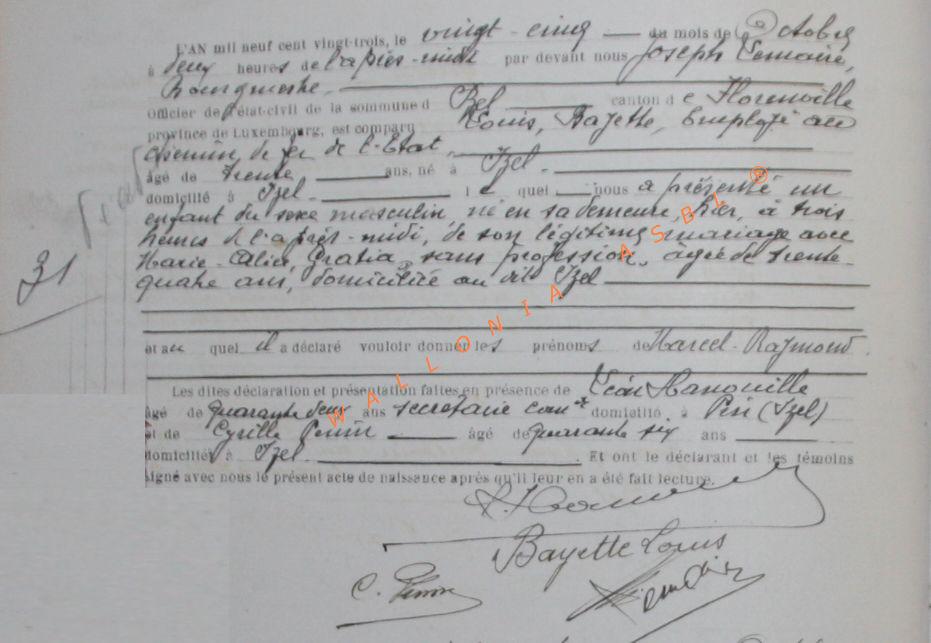 L'AN mil neuf cent vingt-trois, le vingt-cinq du mois de Octobre
à deux heures de l'après-midi par devant nous Joseph Lemaire,
Bourgmestre,
Officier de l'état-civil de la commune d'Izel canton de Florenville
province de Luxembourg, est comparu Louis, Bayette, employé au
chemin, de fer de l'Etat,
âgé de trente ans, né à Izel.
domicilié à Izel. le quel nous a présenté un
enfant du sexe masculin, né en sa demeure, hier, à trois
heures de l'après-midi, de son légitime mariage avec
Marie-Alice, Gratia, sans profession, âgée de trente-
quatre ans, domiciliée au dit Izel
31
et au quel il a déclaré vouloir donner les prénoms de Marcel-Raymond.
Les dites déclaration et présentation faites en présence de Léon Hanouille
âgé de quarante deux ans secrétaire com domicilié à Pin (Izel)
et de Cyrille Pennin âgé de quarante six ans
domiciliés à Izel. Et ont le déclarant et les témoins
signé avec nous le présent acte de naissance après qu'il leur en a été fait lecture.
Bayette Louis
C.
WALLONIA ASBL ®